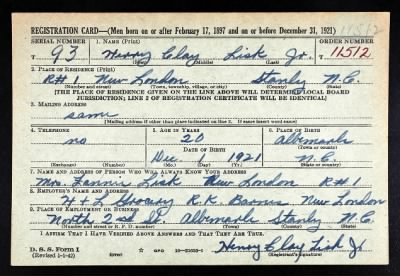 REGISTRATION CARD—(Men born on or after February 17, 1897 and on or before December 31, 1921)
SERIAL NUMBER 1. NAME (Print) ORDER NUMBER
T 93 Henry Clay Lisk Jr. T 11512
(First) (Middle) (Last)
2. PLACE OF RESIDENCE (Print)
R#1 New London Stanly N.C.
(Number and street) (Town, township, village, or city) (County) (State)
[THE PLACE OF RESIDENCE GIVEN ON THE LINE ABOVE WILL DETERMINE LOCAL BOARD
JURISDICTION; LINE 2 OF REGISTRATION CERTIFICATE WILL BE IDENTICAL]
3. MAILING ADDRESS
same
[Mailing address if other than place indicated on line 2. If same insert word same]
4. TELEPHONE 5. AGE IN YEARS 6. PLACE OF BIRTH
no 20 Albemarle
DATE OF BIRTH (Town or county)
Dec. 1921 N.C.
(Exchange) (Number) (Mo.) (Day) (Yr.) (State or country)
7. NAME AND ADDRESS OF PERSON WHO WILL ALWAYS KNOW YOUR ADDRESS
Mrs. Fannie Lisk New London R#1
8. EMPLOYER'S NAME AND ADDRESS
H & L Grocery R.K. Barnes New London
9. PLACE OF EMPLOYMENT OR BUSINESS
North 2nd St. Albemarle Stanly N.C.
(Number and street or R. F. D. number) (Town) (County) (State)
I AFFIRM THAT I HAVE VERIFIED ABOVE ANSWERS AND THAT THEY ARE TRUE.
D. S. S. FORM 1
(Revised 1-1-42) (over) GPO Henry Clay Lisk Jr
(Registrant's signature)